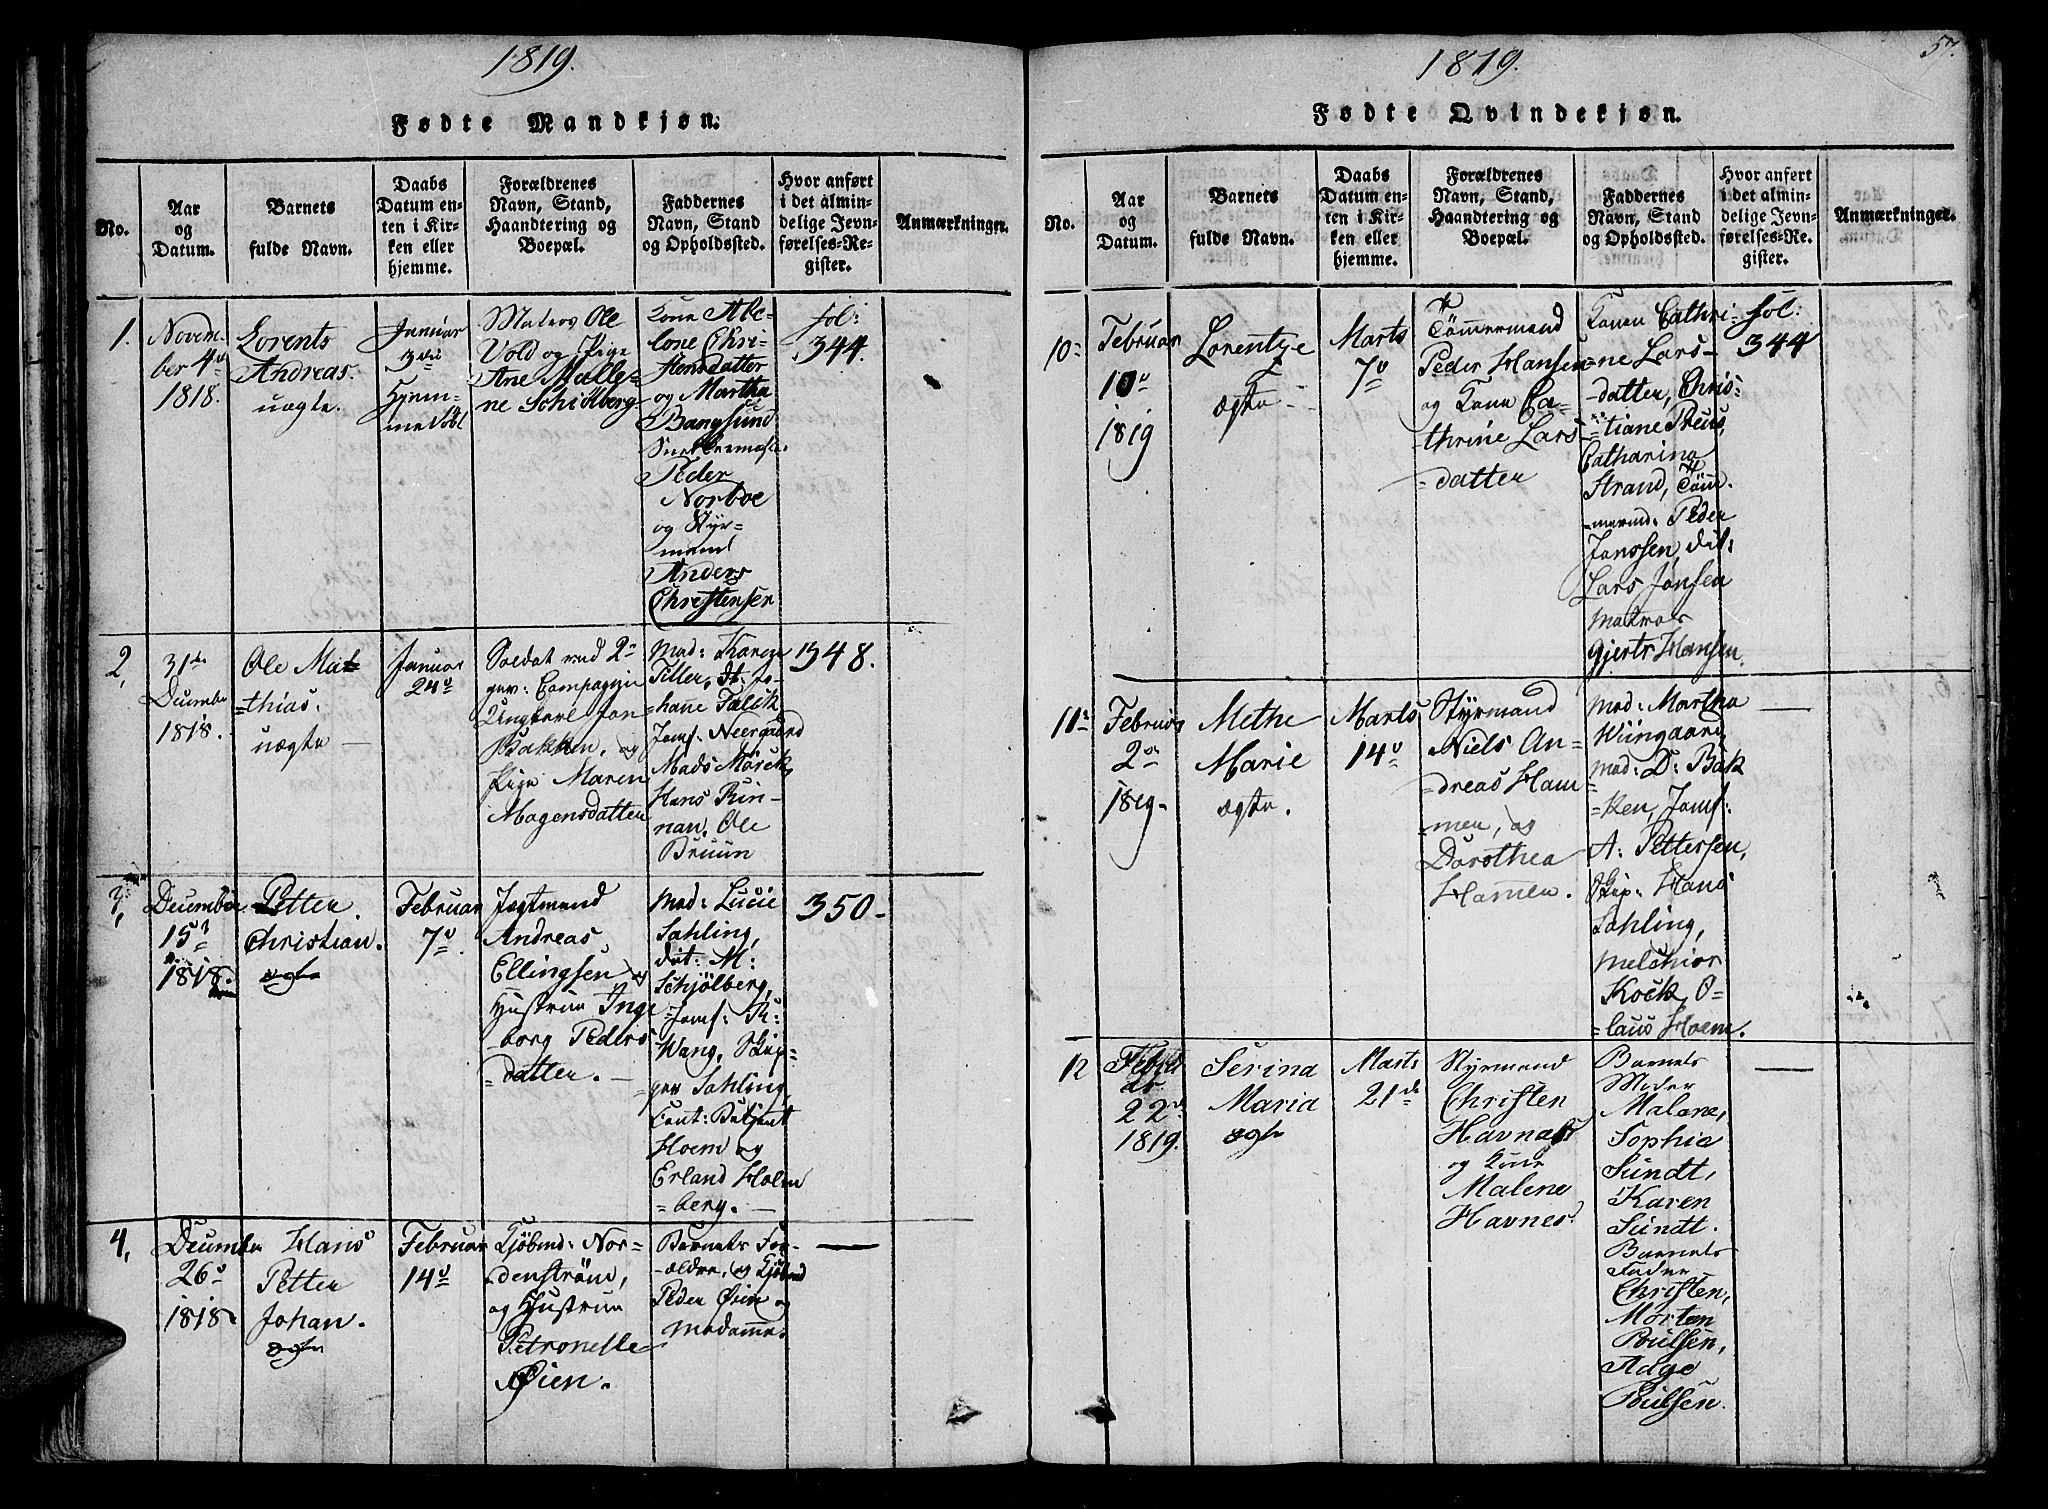 1819.
Fødte Mandkjøn.
No.
Aar
og
Datum.
Barnets
fulde Navn.
Daabs
Datum en-
ten i Kir-
ken eller
hjemme.
Forældrenes
Navn, Stand,
Haandtering og
Boepæl.
Faddernes
Navn, Stand
og Opholdssted.
Hvor anført
i det almin-
delige Jevn-
førelses-Re-
gister.
Anmærkninger.
1.
Novem-
ber 4de
1818.
Lorents
Andreas.
uægte.
Januar
3die
Hjem-
medøbt
Matros Ole
Vold og Pige
Ane Malle-
ne Schiölberg
Kone Abe-
lone Chri-
stensdatter
og Martha
Bangsund
Snekkermester
Peder
Norboe
og Styr-
mand
Anders
Christensen
fol:
344.
2,
31te
Decembr
1818.
Ole Mat-
=thias.
uægte
Januar
24de
Soldat ved 2de
gev: Compagnie
Ungkarl Jon
Bakken, og
Pige Maren
Mogensdatter
Mad: Karen
Tiller, dt: Jo-
hane Falck
Jomf: Neergaard
Mads Mörck,
Hans Rin-
nan, Ole
Bruun
348.
3,
Decembr
15de
1818.
Petter
Christian.
ægte
Februar
7de
Jægtmand
Andreas
Ellingsen og
Hustrue Inge
=borg Peders
=datter.
Mad: Lucie
Sahling,
dit: M:
Schjölberg,
Jomf: R:
Wang, Skip-
per Sahling,
Cont: Betjent
Hoem og
Erland Holm
=berg.
350
4,
Decembr
26de
1818.
Hans
Petter
Johan.
ægte
Februar
14de
Kjöbmd: Nor-
denström,
og Hustrue
Petronelle
Øien.
Barnets For-
ældre, og Kjöbmd
Peder Øien og
Madamme.
1819.
57.
Fødte Qvindekjøn.
No.
Aar
og
Datum.
Barnets
fulde Navn.
Daabs
Datum en-
ten i Kir-
ken eller
hjemme.
Forældrenes
Navn, Stand,
Haandtering og
Boepæl.
Faddernes
Navn, Stand
og Opholdssted.
Hvor anført
i det almin-
delige Jevn-
førelses-Re-
gister.
Anmærkninger.
10
Februar
10de
1819
Lorentze
ægte
Marts
7de
Tömmermand
Peder Hansen
og Kone Ca-
thrine Lars
=datter
Konen Cathri-
=ne Lars-
datter, Chris-
=tiane Preus,
Catharina
Strand, Töm-
mermd: Peder
Janssen, dit:
Lars Jonsen
Matros
Gjerts Hansen.
fol:
344
11
Februar
2den
1819.
Methe
Marie
ægte.
Marts
14de
Styrmand
Niels An-
dreas Ham-
mer, og
Dorothea
Hamer.
Mad: Martha
Wiingaard
Mad: D: Bak
=ken, Jomf:
A: Pettersen,
Skip: Hans
Sahling,
Melchior
Kock, O-
=laus Hoem.
12
Februar
22de
1819.
Serina
Maria
ægte
Marts
21de
Styrmand
Christen
Havnes
og Kone
Malene
Havnes.
Barnets
Moder
Malene,
Sophie
Sundt,
Karen
Sundt.
Barnets
Fader
Christen,
Morten
Poulsen,
Aage
Poulsen.